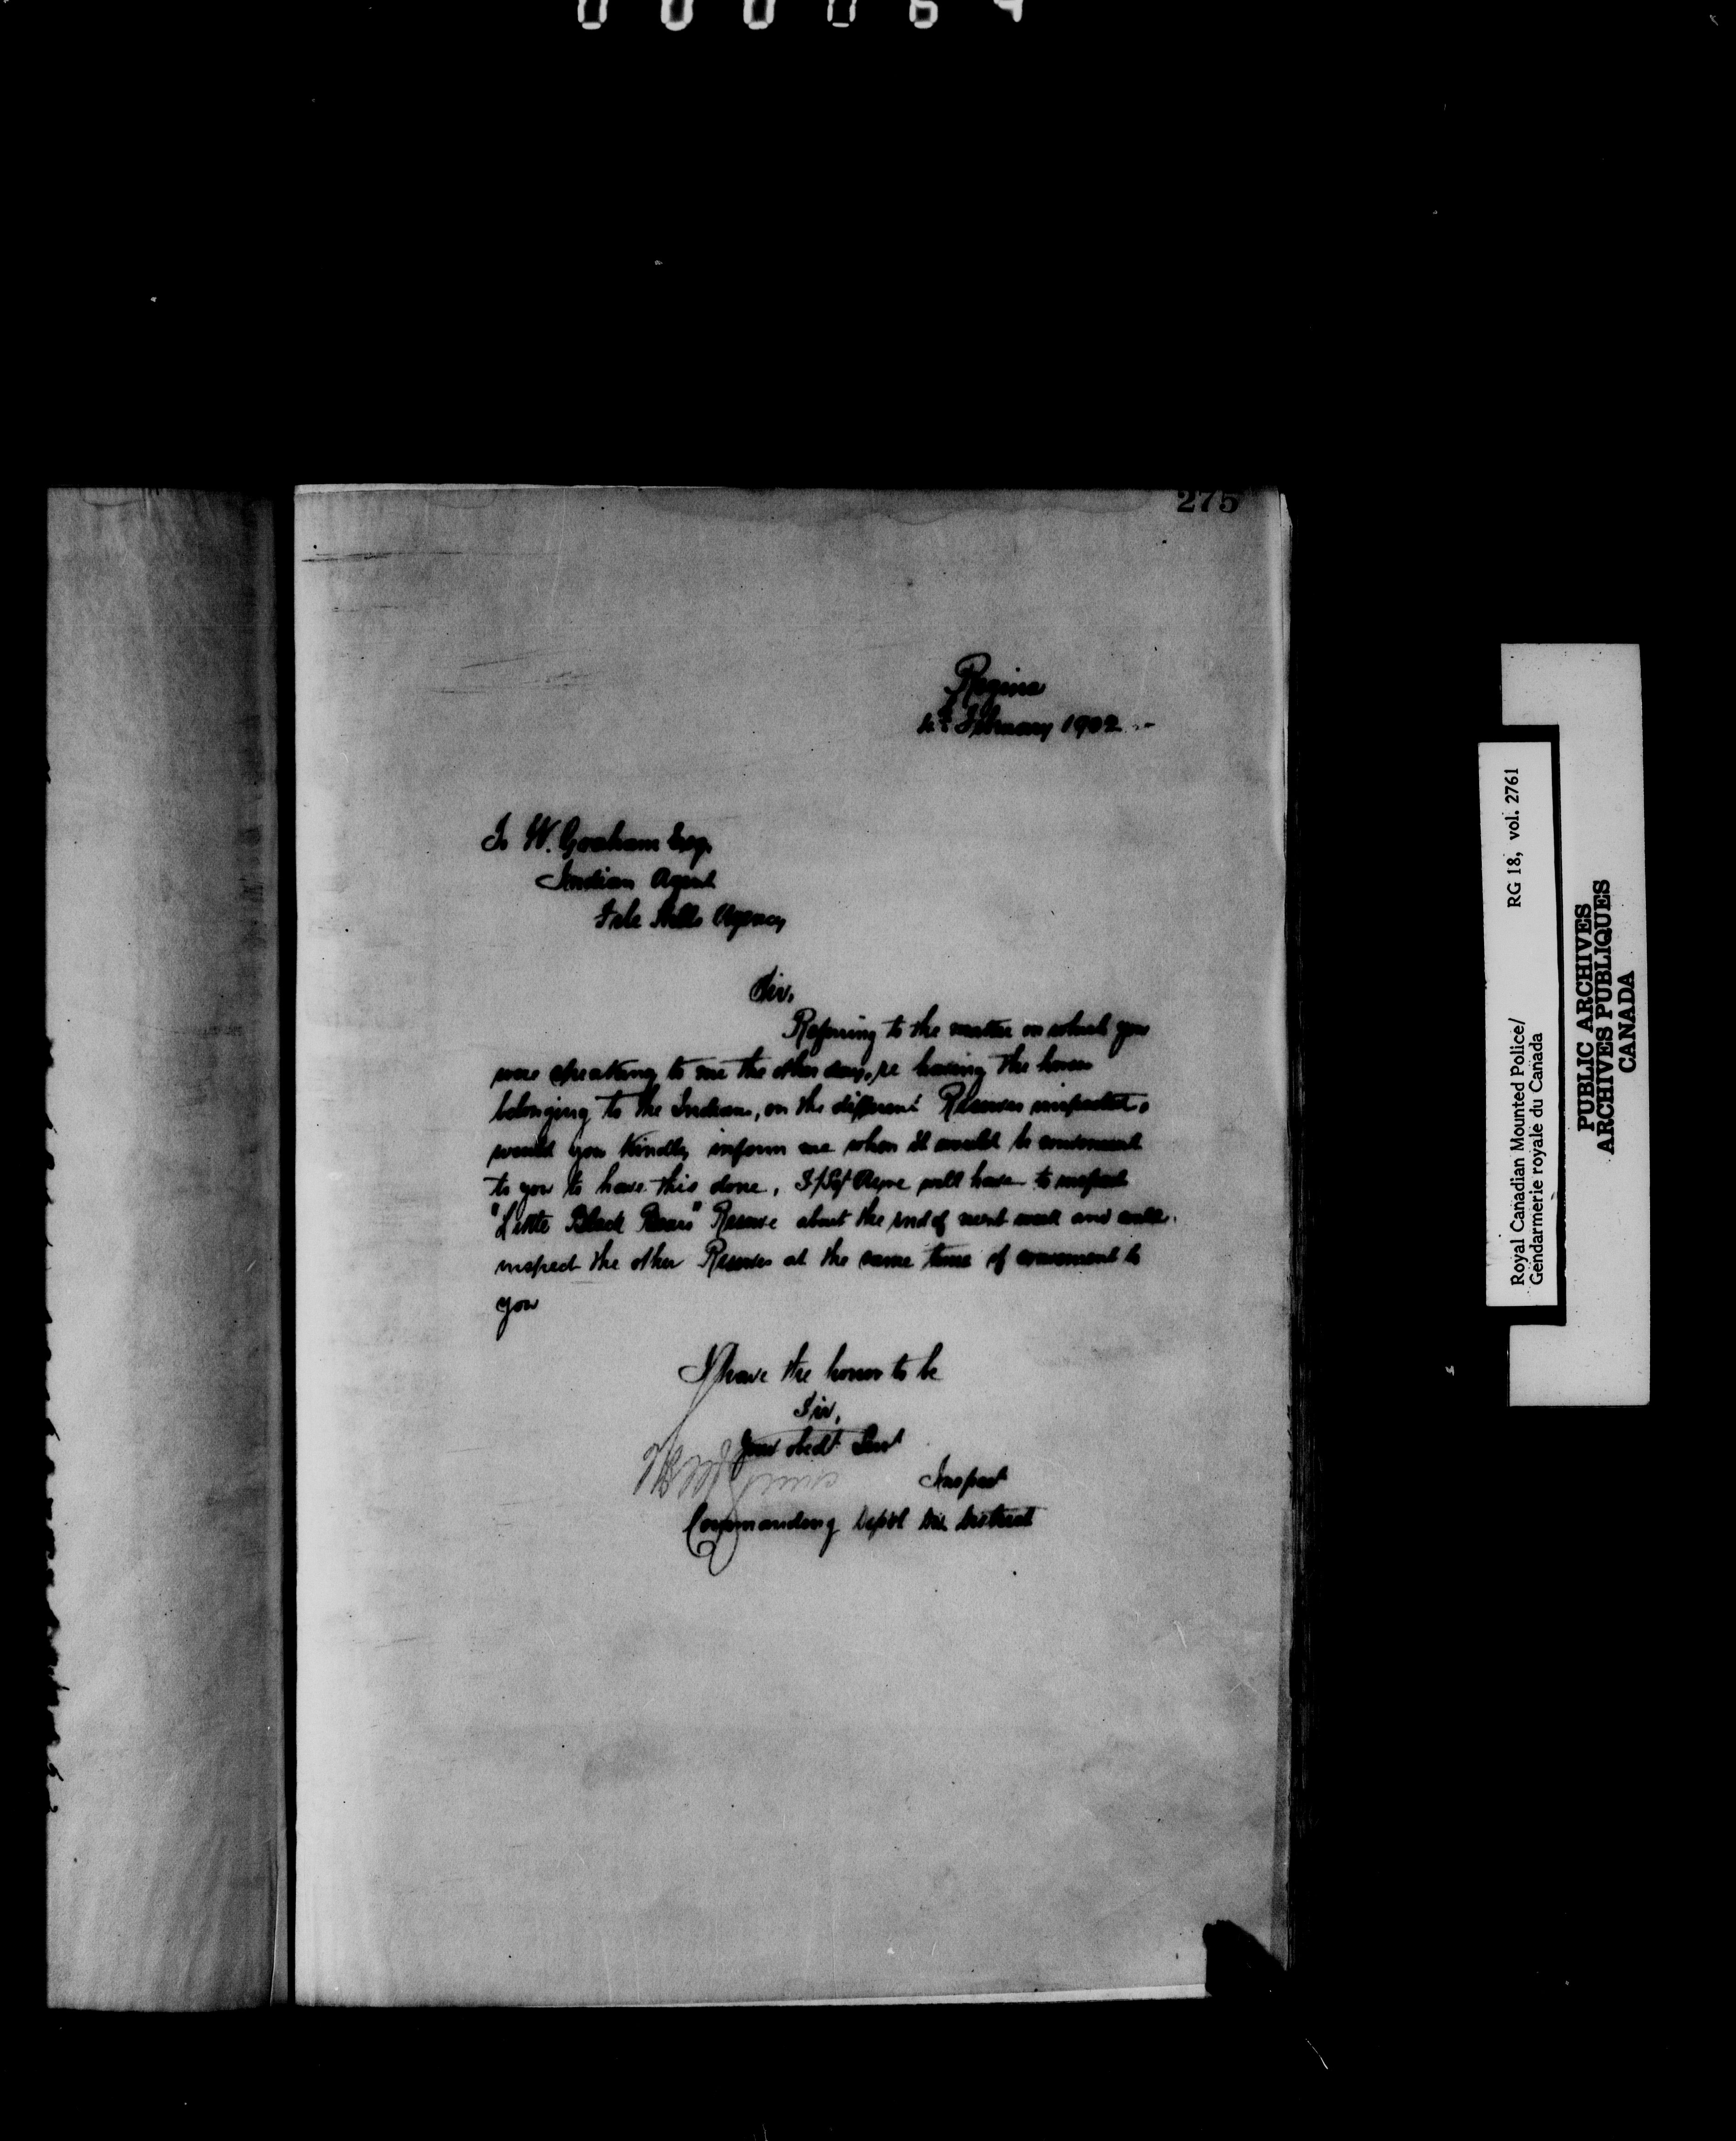 275
Regina
4th February 1902
To W. Graham Esq.
Indian Agent
File Hills Agency
Sir,
Referring to the matter on which you
were speaking to me the other day, re having the horses
belonging to the Indians, on the different Reserves inspected,
would you kindly inform me when it would be convenient
to you to have this done, S/Sgt Ayre will have to inspect
"Little Black Bears" Reserve about the end of next week and will
inspect the other Reserves at the same time if convenient to
you
I have the honor to be
Sir,
Your obedt Servt
Inspect
Commanding Depot Div. District
Royal Canadian Mounted Police/
Gendarmerie royale du Canada
RG 18, vol. 2761
PUBLIC ARCHIVES
ARCHIVES PUBLIQUES
CANADA